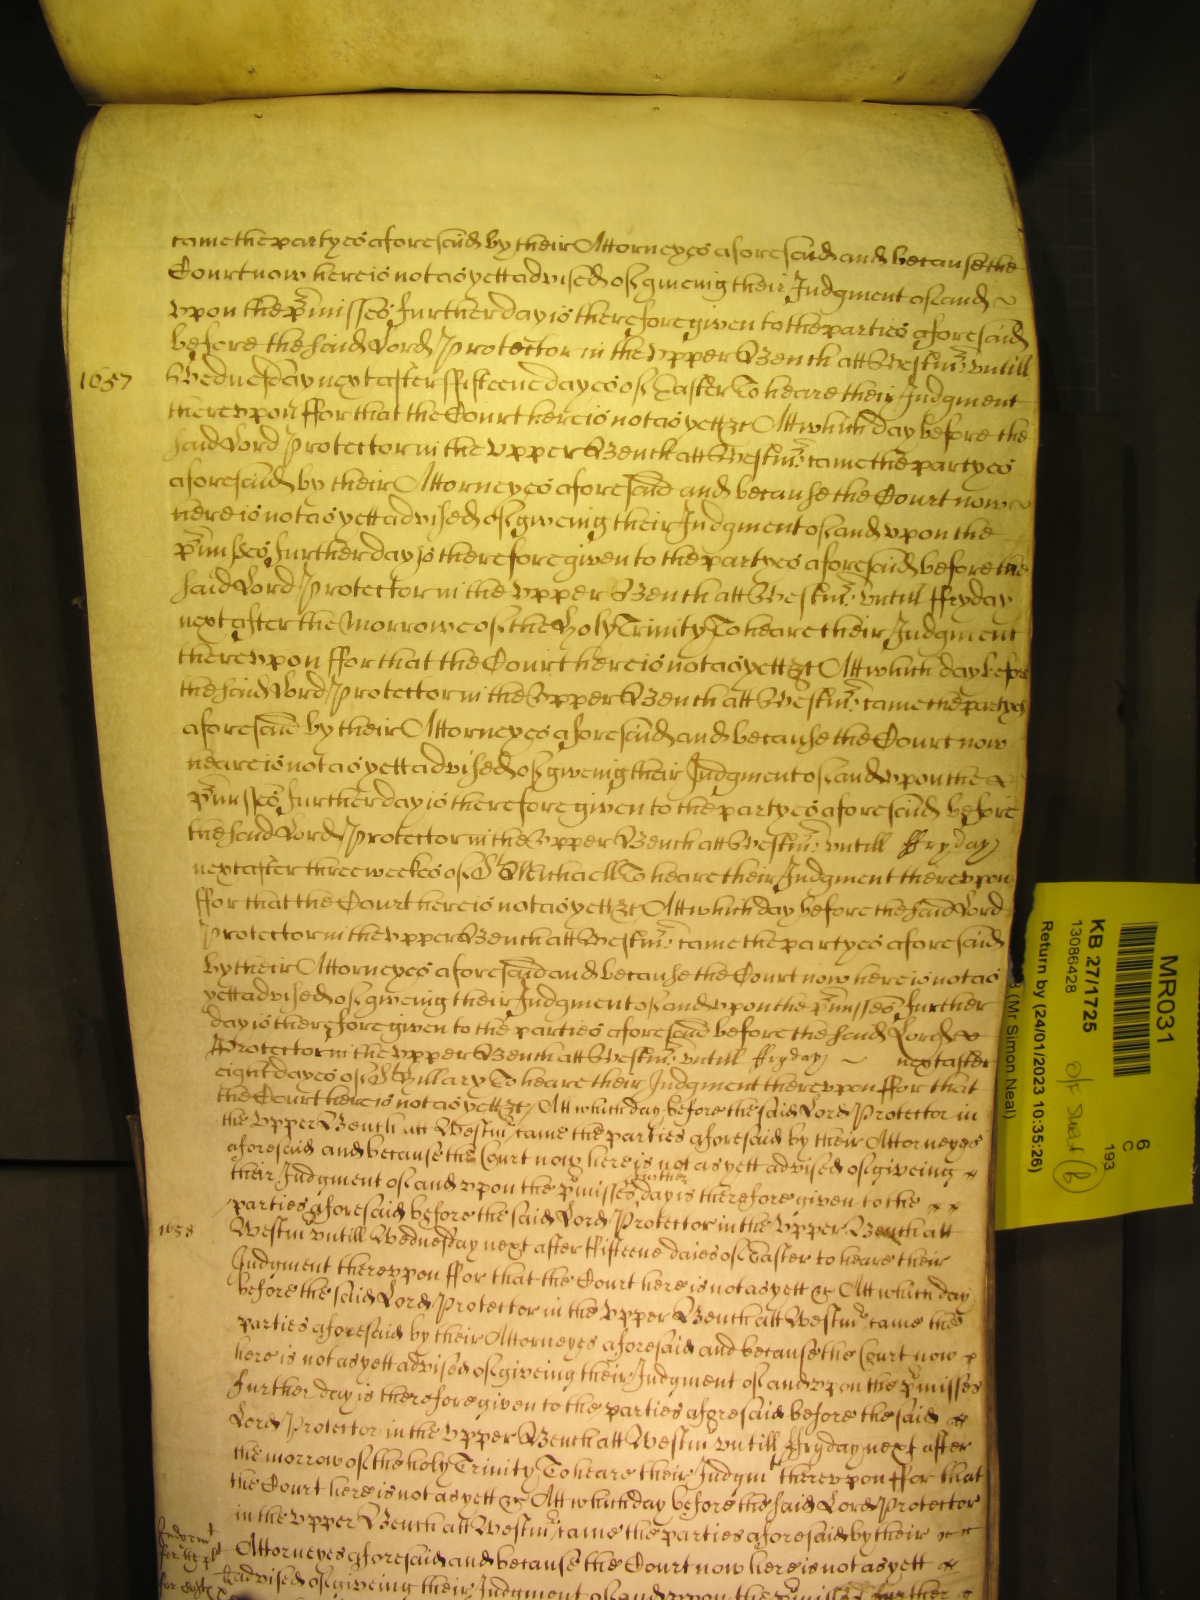 came the partyes aforesaid by their Attorneyes aforesaid and because the
Court now here is not as yett advised of giveing their Judgment of and
vpon the p̃misses further day is therefore given to the parties aforesaid
before the said Lord Protector in the vpper Bench att Westm̃: vntill
1657 Wednesday next after ffifteene dayes of Easter To heare their Judgment
therevpon ffor that the Court here is not as yett &c Att which day before the
said Lord Protector in the vpper Bench att Westm̃: came the partyes
aforesaid by their Attorneyes aforesaid and because the Court now
here is not as yett advised of giveing their Judgment of and vpon the
p̃misses further day is therefore given to the partyes aforesaid before the
said Lord Protector in the vpper Bench att Westm̃: vntill ffryday
next after the Morrowe of the Holy Trinity To heare their Judgment
therevpon ffor that the Court here is not as yett &c Att which day before
the said Lord Protector in the Vpper Bench att Westm̃: came the partyes
aforesaid by their Attorneyes aforesaid and because the Court now
heare is not as yett advised of giveing their Judgment of and vpon the
p̃misses further day is therefore given to the partyes aforesaid before
the said Lord Protector in the Vpper Bench att Westm̃: vntill ffryday
next after three weekes of St Michaell To heare their Judgment therevpon
ffor that the Court here is not as yett &c Att which day before the said Lord
Protector in the vpper Bench att Westm̃: came the partyes aforesaid
by their Attorneyes aforesaid and because the Court now here is not as
yett advised of giveing their Judgment of and vpon the p̃misses further
day is therefore given to the parties aforesaid before the said Lord
Protector in the vpper Bench att Westm̃: vntill ffryday next after
eight dayes of St Hillary To heare their Judgment therevpon ffor that
the Court here is not as yett &c Att which day before the said Lord Protector in
the vpper Bench att Westm̃ came the parties aforesaid by their Attorneyes
aforesaid and because the Court now here is not as yett advised of giveing
their Judgment of and vpon the p̃misses further day is therefore given to the
parties aforesaid before the said Lord Protector in the Vpper Bench att
1658 Westm̃ vntill Wednesday next after ffifteene daies of Easter to heare their
Judgment therevpon ffor that the Court here is not as yett &c Att which day
before the said Lord Protector in the vpper Bench att Westm̃ came the
parties aforesaid by their Attorneyes aforesaid and because the Court now
here is not as yett advised of giveing their Judgment of and vpon the p̃misses
further day is therefore given to the parties aforesaid before the said
Lord Protector in the vpper Bench att Westm̃ vntill ffryday next after
the morrow of the holy Trinity To heare their Judgmt therevpon ffor that
the Court here is not as yett &c Att which day before the said Lord Protector
in the vpper Bench att Westm̃ came the parties aforesaid by their
Attorneyes aforesaid and because the Court now here is not as yett
advised of giveing their Judgment of and vpon the p̃misses further
Judgmt
for the plt
for
MR031
KB 27/1725
13086428
Return by (24/01/2023 10:35:26)
(Mr Simon Neal)
6
C
193